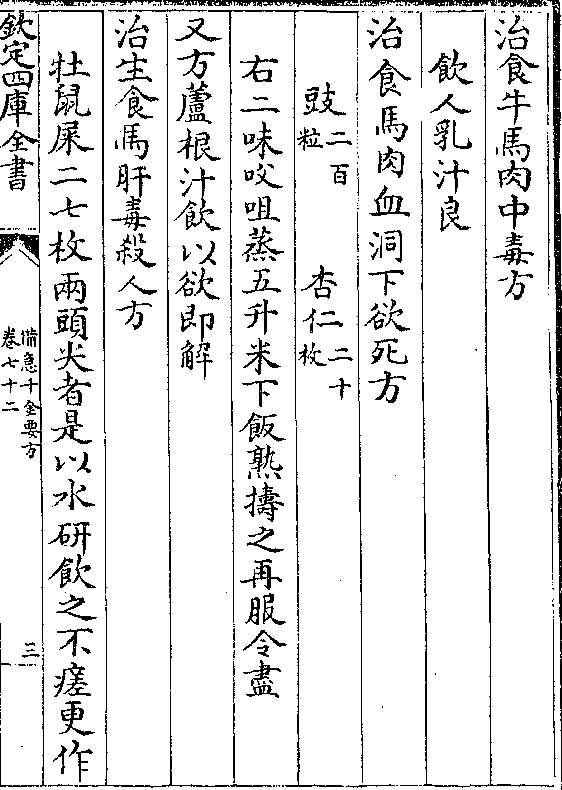 治食牛馬肉中毒方
飲人乳汁良
治食馬肉血洞下欲死方
豉二百粒 杏仁二十枚
右二味㕮咀蒸五升米下飯熟擣之再服令盡
又方蘆根汁飲以欲即解
治生食馬肝毒殺人方
牡鼠屎二七枚兩頭尖者是以水研飲之不瘥更作
欽定四庫全書
備急千金要方
卷七十二
三